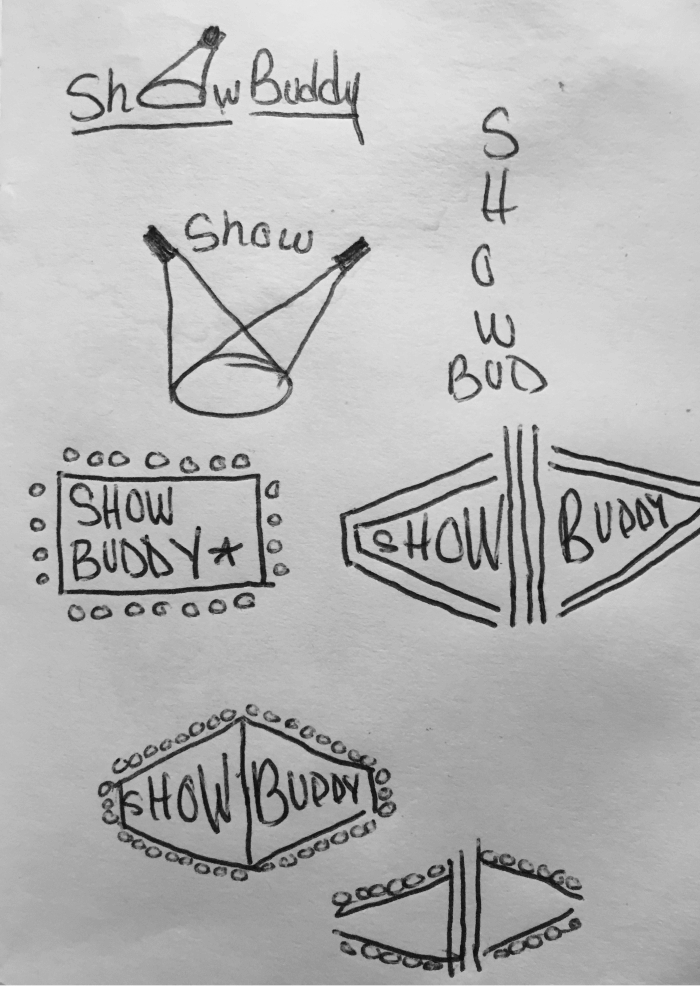 Show Buddy
Show
S
H
O
W
BUD
SHOW
BUDDY
SHOW BUDDY
SHOW BUDDY